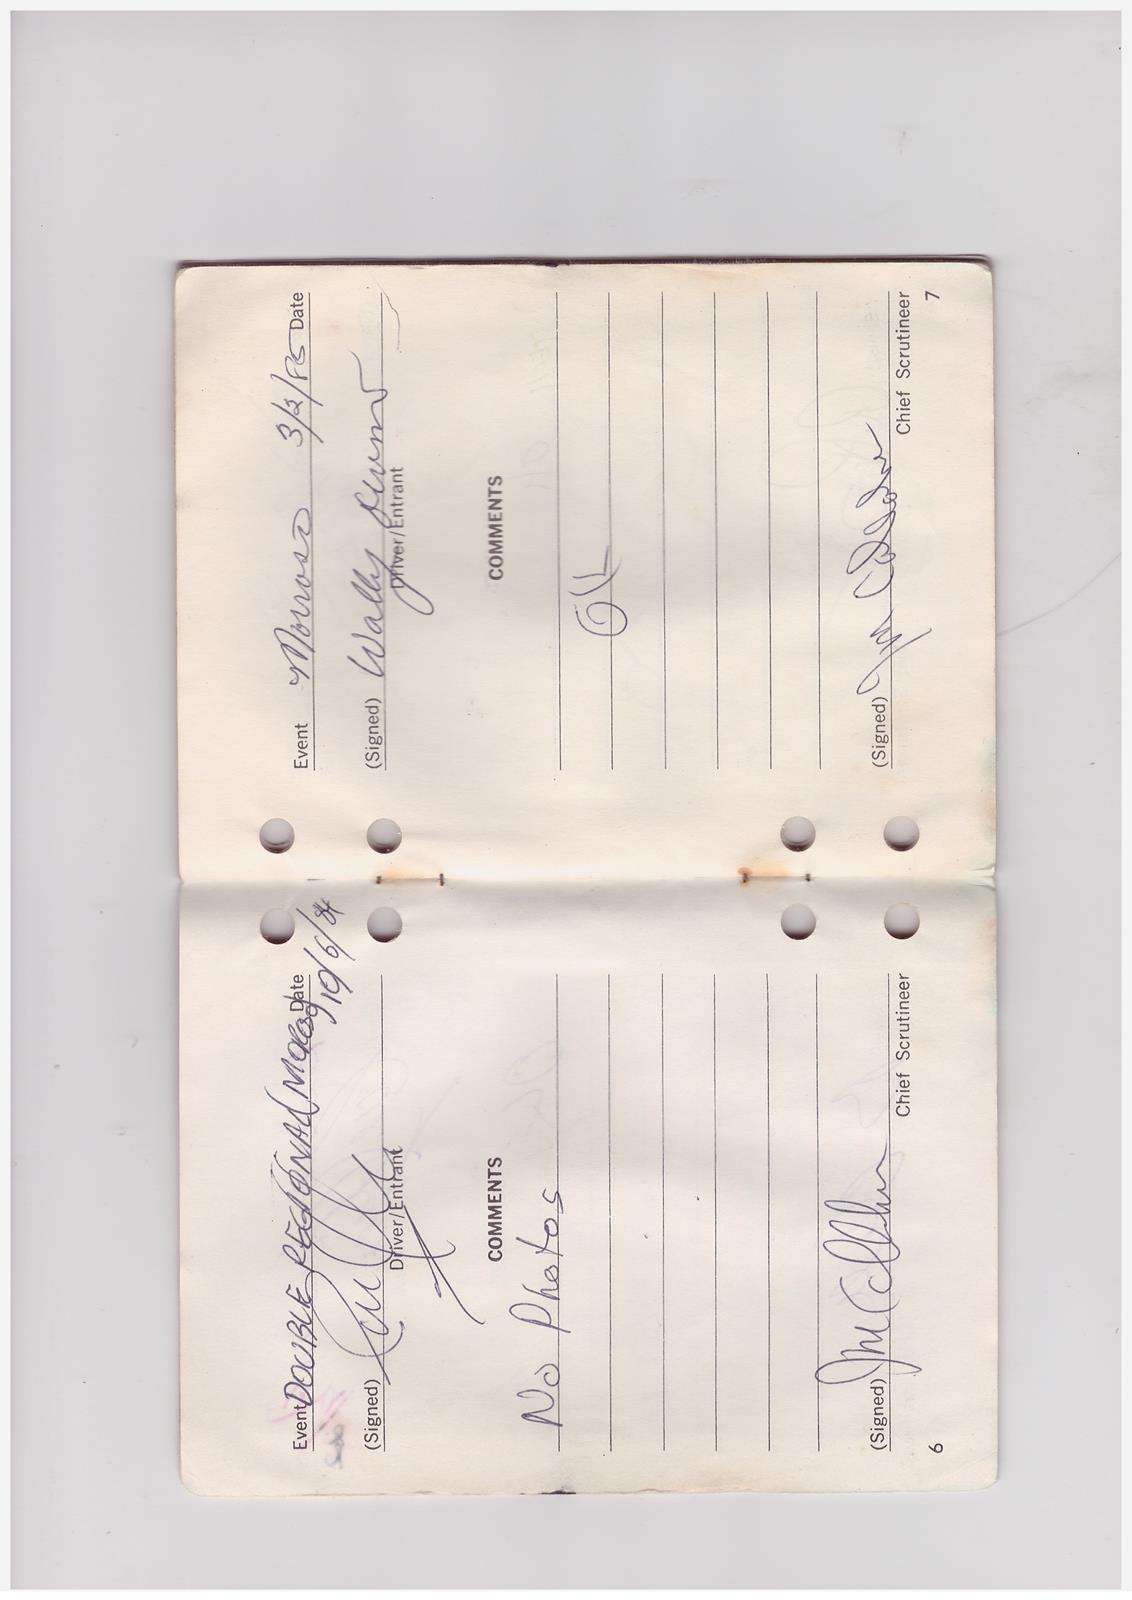 Event DOUBLE REGIONAL Date 10/6/84
(Signed)
Driver/Entrant
COMMENTS
No Photos
(Signed)
Chief Scrutineer
6
Event Date 3/2/85
(Signed) Wally
Driver/Entrant
COMMENTS
OK
(Signed)
Chief Scrutineer
7